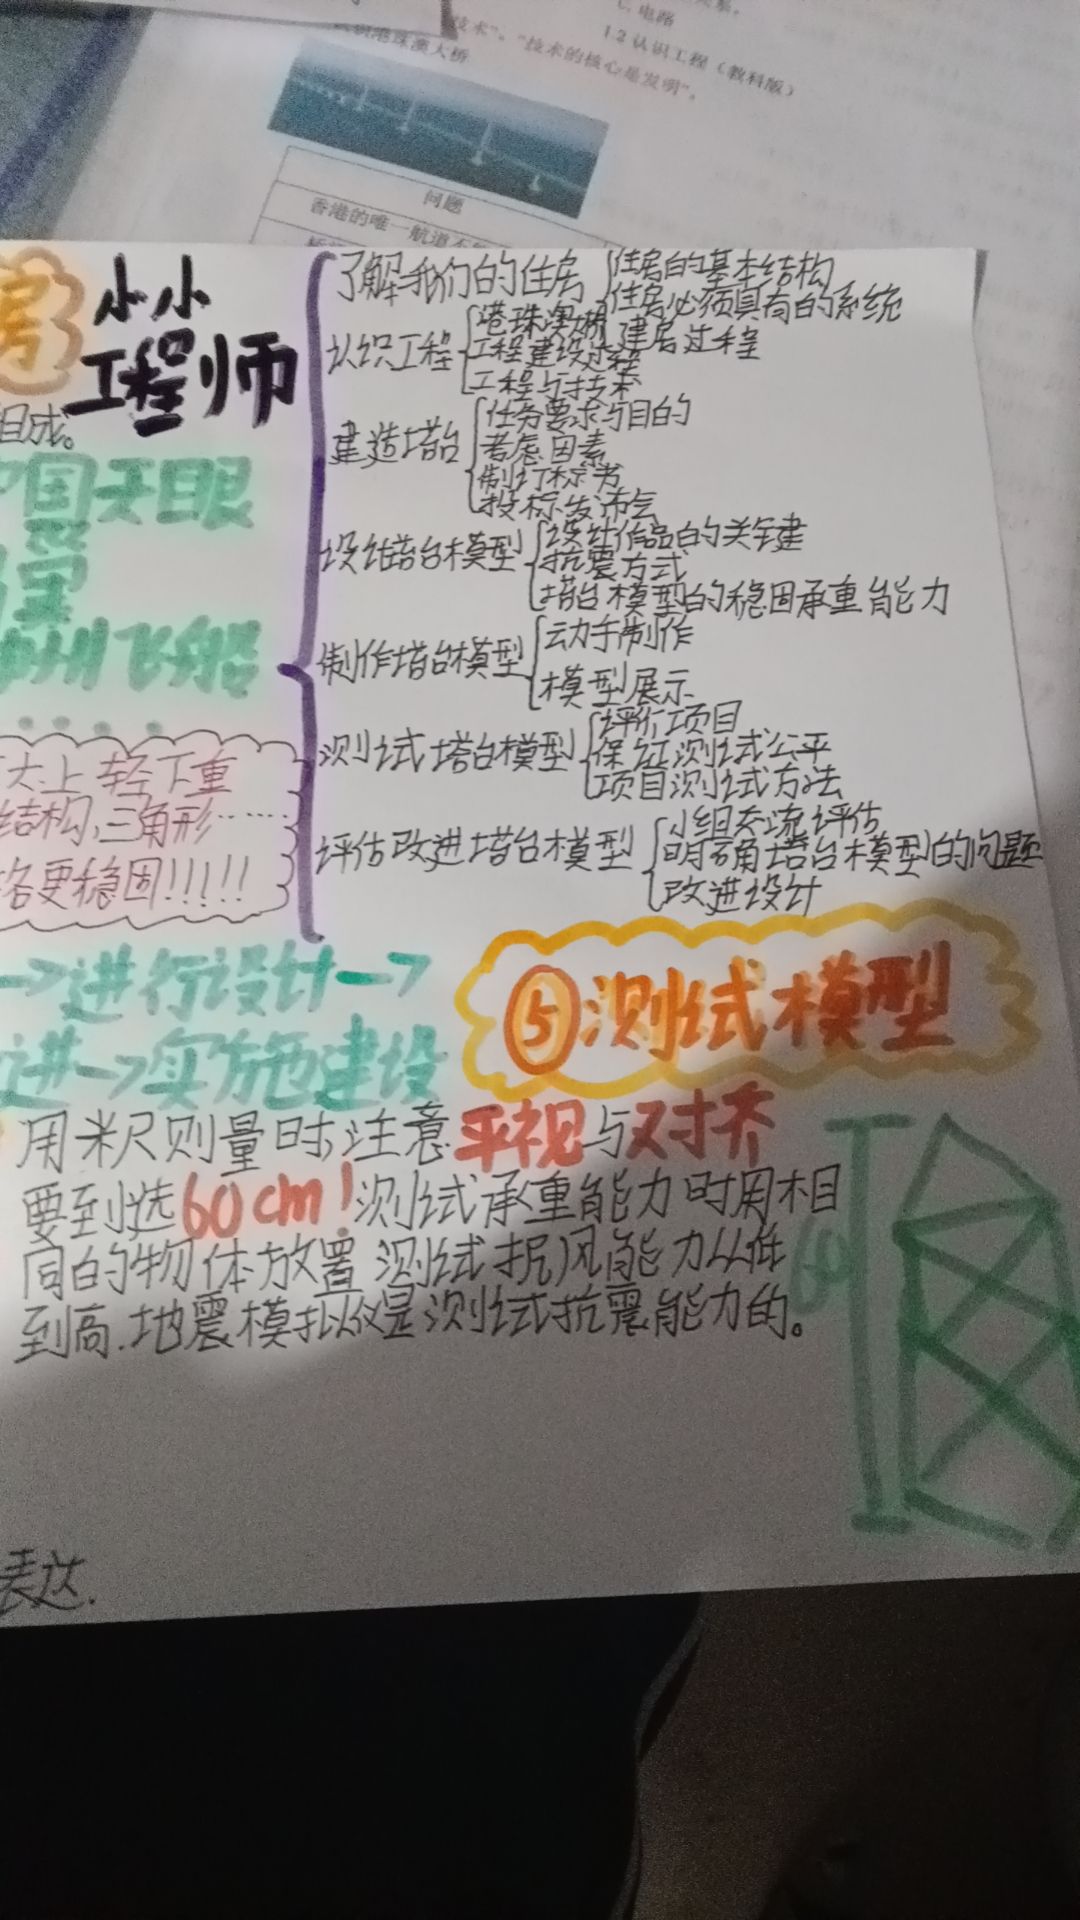 技术”。“技术的核心是发明”。
识港珠澳大桥
C. 电路
1.2 认识工程（教科版）
问题
香港的唯一航道不
房
小小
工程师
组成。
中国天眼
神州飞船
大上轻下重
结构,三角形……
更稳固!!!!!
了解我们的住房
住房的基本结构
住房必须具有的系统
建房过程
认识工程
港珠澳大桥
工程建设过程
工程与技术
建造塔台
任务要求与目的
考虑因素
制订标书
投标发布会
设计塔台模型
设计作品的关键
抗震方式
塔台模型的稳固承重能力
制作塔台模型
动手制作
模型展示
测试塔台模型
评价项目
保证测试公平
项目测试方法
评估改进塔台模型
小组交流评估
明确塔台模型的问题
改进设计
→进行设计→
进→实施建设
⑤测试模型
用米尺测量时,注意平视与对齐
要到达60cm!测试承重能力时用相
同的物体放置 测试抗风能力从低
到高.地震模拟仪是测试抗震能力的。
60
表达.